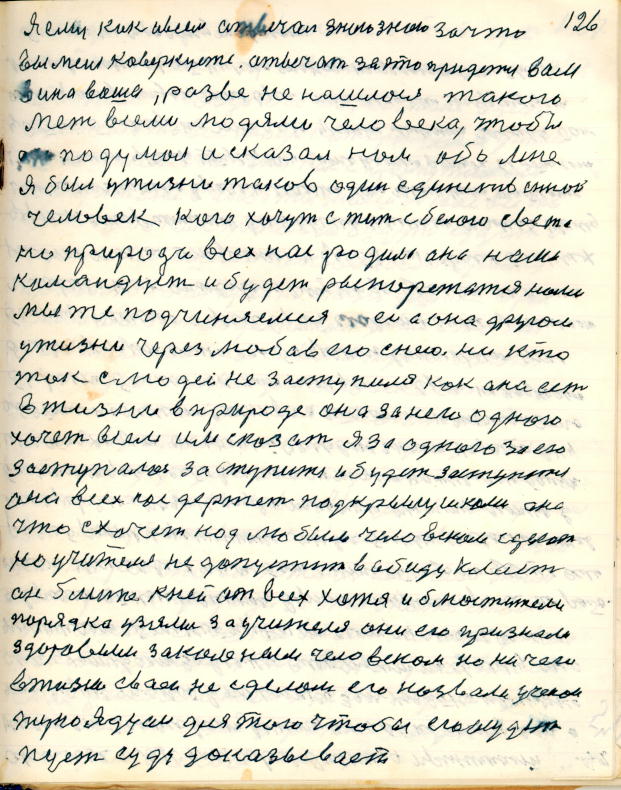 126
Я ему как и всем отвечал знаю знаю за что
вы меня коверкуете. отвечат за это придется вам
вина ваша, разве не нашлося такого
меж всеми людями человека, чтобы
он подумал и сказал нам обо мне
я был у жизни таков один единственной
человек кого хочут с жит с белого света
но природа всех нас родила она нами
командует и будет распоретжатся нами
мы же подчиняемся ей а она другом
ужизни через любов его снею. ни кто
так слюдей не заступился как она ест
в жизни в природе она за него одного
хочет всем им сказат я за одного за его
заступалас заступит и будет заступится
она всех нас держет подкрылушками она
что схочет над любым человеком сделат
но учителя не допустит в абиду класт
он ближе к ней от всех хотя и блюстители
порядка узяли за учителя они его признали
здоровыми законными человеком но ни чего
в жизни своеи не сделали его назвали ученои
тунеядцам для того чтобы его судит
пуст суд доказывает